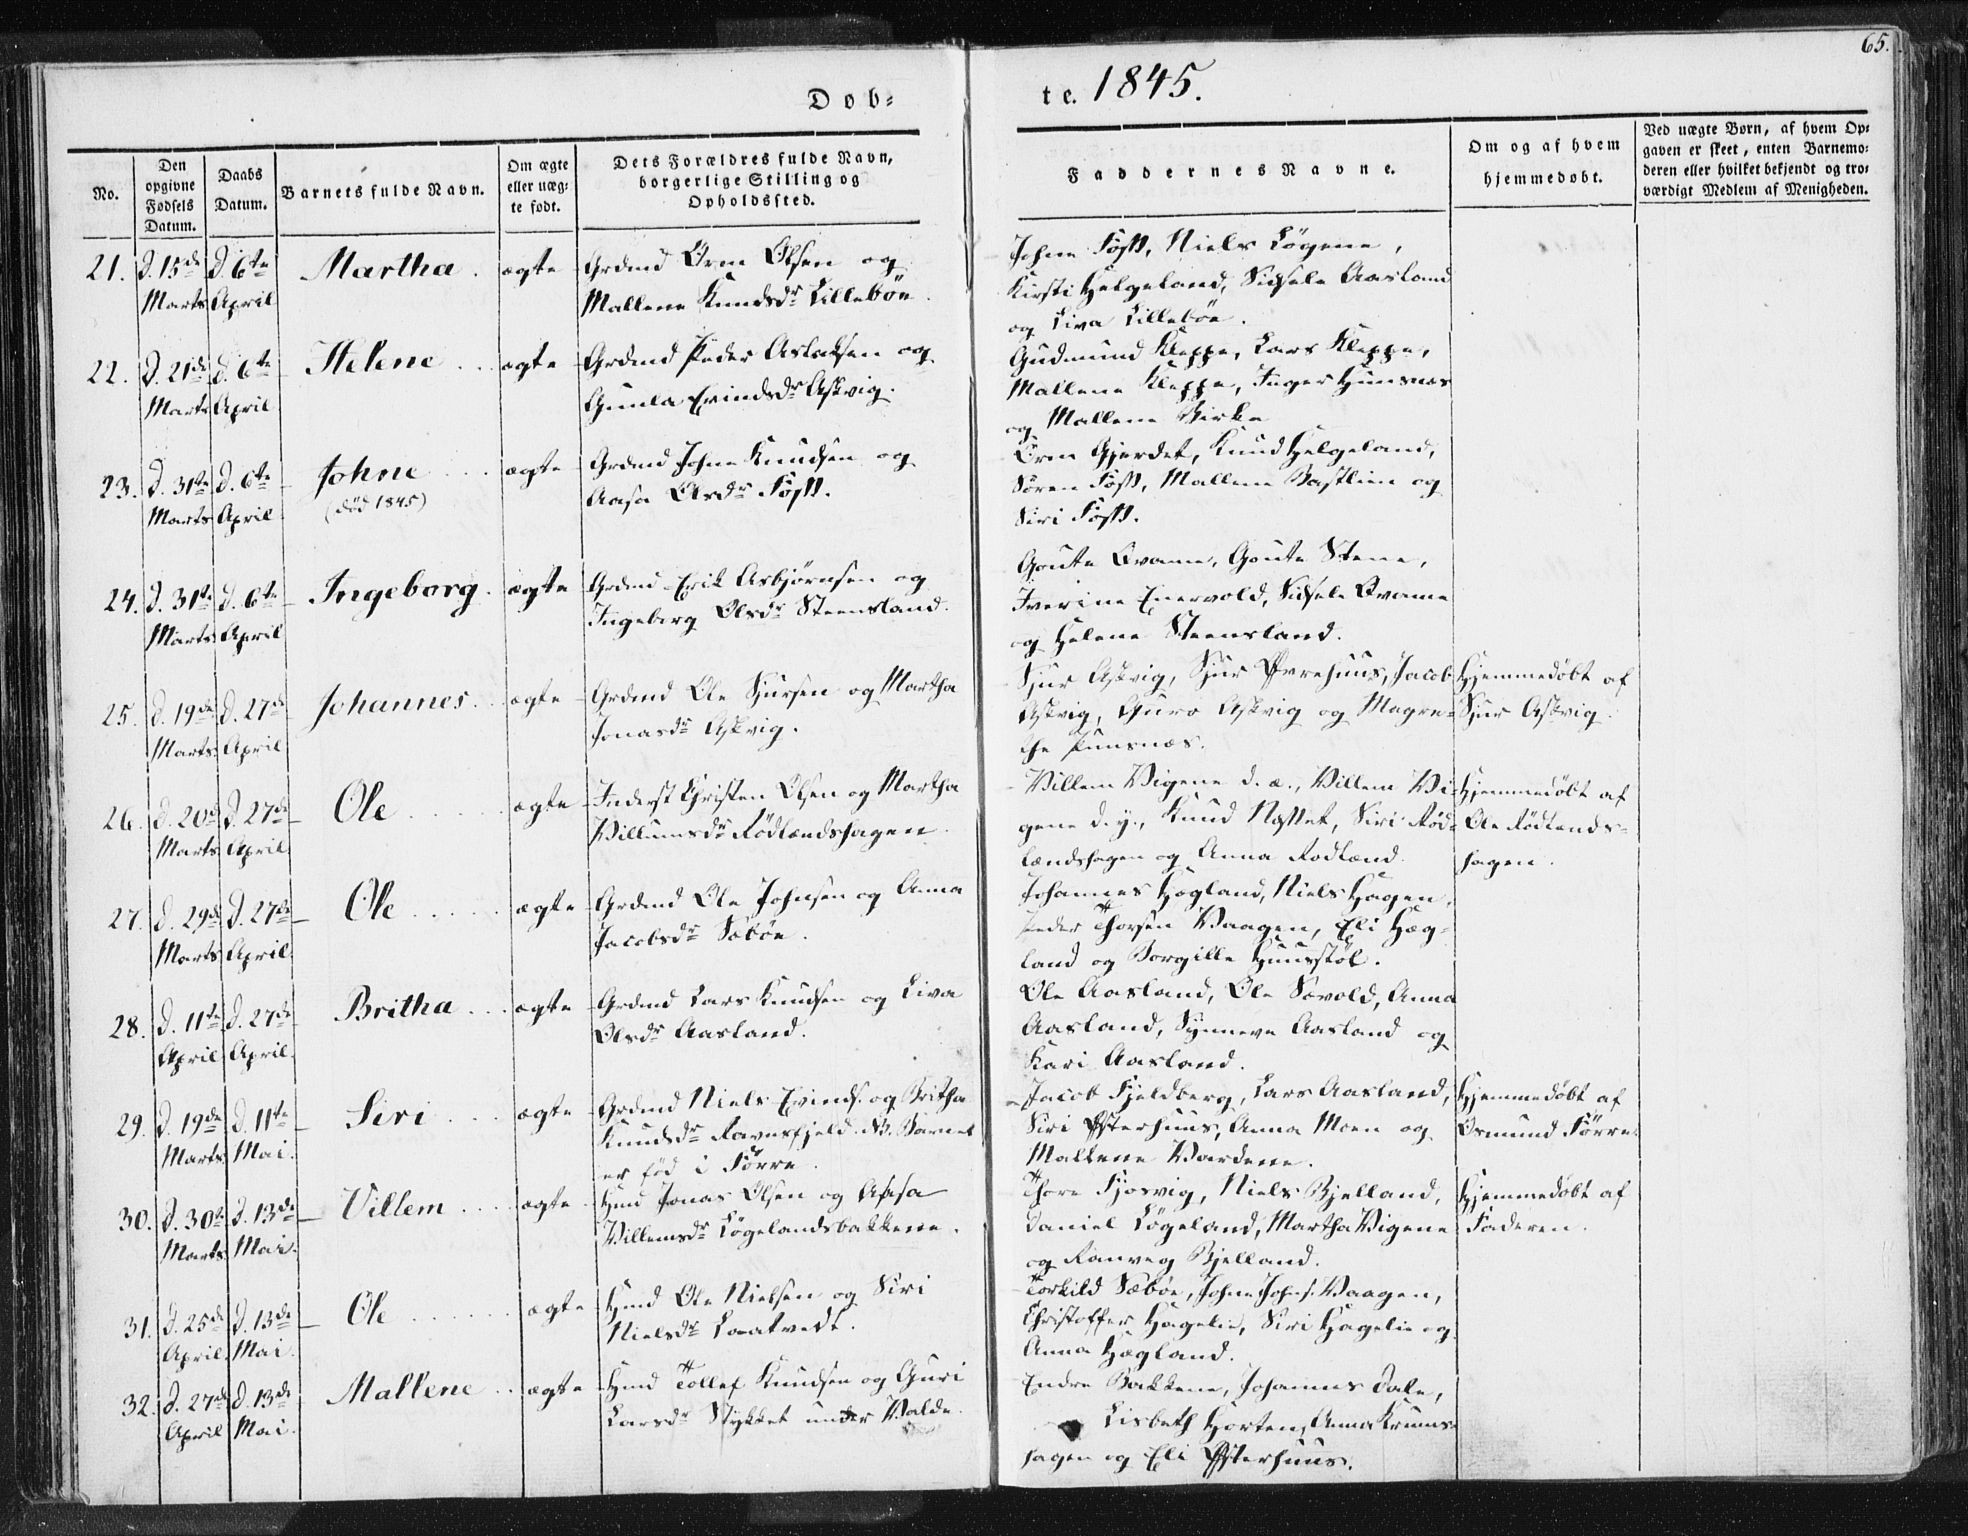 65.
Døb=
te. 1845.
No.
Den opgivne Fødsels Datum.
Daabs Datum.
Barnets fulde Navn.
Om ægte eller uæg= te født.
Dets Forældres fulde Navn, borgerlige Stilling og Opholdssted.
Faddernes Navne.
Om og af hvem hjemmedøbt.
Ved uægte Børn, af hvem Op= gaven er skeet, enten Barnemo= deren eller hvilket bekjendt og tro= værdigt Medlem af Menigheden.
21. d. 15de Marts d. 6te April Martha. ægte Grdmd Orm Olsen og
Mallene Knudsdr Lillebøe.
Johne Fosß, Niels Løgene,
Kirsti Helgeland, Sidsele Aasland
og Siva Lillebøe.
22. d. 21de Marts d. 6te April Helene ægte Grdmd Peder Aslaksen og
Gunla Evindsdr Askvig.
Gudmund Kleppe, Lars Kleppe,
Mallene Kleppe, Inger Hunsnæs
og Mallene Birke
23. d. 31te Marts d. 6te April Johne (død 1845) ægte Grdmd Johne Knudsen og
Aasa Olsdr Fosß.
Orm Gjerdet, Knud Helgeland,
Søren Fosß, Mallene Bastlien og
Siri Fosß.
24. d. 31te Marts d. 6te April Ingeborg. ægte Grdmd Erik Asbjørnsen og
Ingeborg Olsdr Steensland.
Goute Qvame, Goute Stene,
Iverine Enervold, Sidsele Qvame
og Helene Steensland.
25. d. 19de Marts d. 27de April Johannes ægte Grdmd Ole Sjursen og Martha
Jonasdr Askvig.
Sjur Askvig, Sjur Øvrehuus, Jacob
Askvig, Guro Askvig og Magre=
the Punsnæs.
Hjemmedøbt af
Sjur Askvig.
26. d. 20de Marts d. 27de April Ole ægte Inderst Christen Olsen og Martha
Villumsdr Rødlandshagen.
Villem Vigene d. æ., Villem Vi=
gene d. y., Knud Nættet, Siri Rød=
landshagen og Anna Rodland.
Hjemmedøbt af
Ole Rødlands=
hagen.
27. d. 29de Marts d. 27de April Ole ægte Grdmd Ole Johnsen og Anna
Jacobsdr Sæbøe.
Johannes Høgland, Niels Hagen,
Peder Thorsen Vaagen, Eli Høg=
land og Borgille Huusstøl.
28. d. 11te April d. 27de April Britha ægte Grdmd Lars Knudsen og Siva
Olsdr Aasland.
Ole Aasland, Ole Sævold, Anna
Aasland, Synneve Aasland og
Kari Aasland.
29. d. 19de Marts d. 11te Mai. Siri ægte Grdmd Niels Evinds. og Britha
Knudsdr Ravnsfjeld. NB. Barnet
er fød i Førre.
Jacob Fjeldberg, Lars Aasland,
Siri Østerhuus, Anna Moen og
Mallene Vardene.
Hjemmedøbt af
Osmund Førre.
30. d. 30te Marts d. 13de Mai. Villem ægte Hmd Jonas Olsen og Aasa
Villemsdr Løgelandsbakkene.
Thore Fjosvig, Niels Bjelland,
Daniel Løgeland, Martha Vigene
og Ranveg Bjelland.
Hjemmedøbt af
Faderen.
31. d. 25de April d. 13de Mai. Ole ægte Hmd Ole Nielsen og Siri
Nielsdr Laatvedt.
Torkild Sæbøe, Johne Johns. Vaagen,
Christoffer Hagelie, Siri Hagelie og
Anna Høgland.
32. d. 27de April d. 13de Mai. Mallene ægte Hmd Tollef Knudsen og Guri
Larsdr Stykket under Valde.
Endre Bakkene, Johannes Dale,
Lisbeth Horten, Anna Krums=
hagen og Eli Østerhuus.